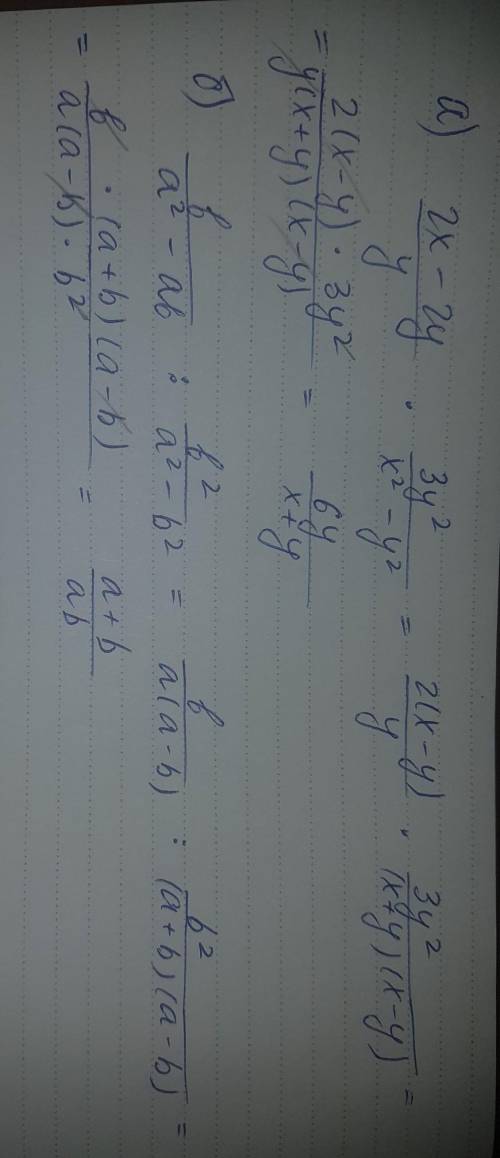 а) (2x - 2y)/y · 3y²/(x² - y²) = 2(x - y)/y · 3y²/((x + y)(x - y)) =
= (2(x - y) · 3y²)/(y(x + y)(x - y)) = 6y/(x + y)
б) b/(a² - ab) : b²/(a² - b²) = b/(a(a - b)) : b²/((a + b)(a - b)) =
= (b · (a + b)(a - b))/(a(a - b) · b²) = (a + b)/(ab)